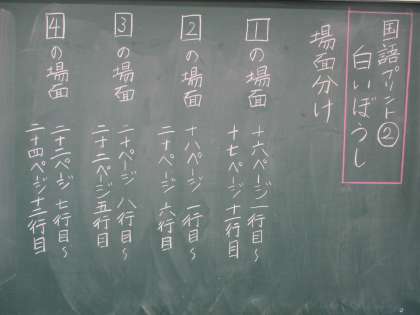 国語プリント②
白いぼうし
場面分け
1の場面
十六ページ一行目~
十七ページ十一行目
2の場面
十八ページ一行目~
二十ページ六行目
3の場面
二十ページ八行目~
二十二ページ五行目
4の場面
二十二ページ七行目~
二十四ページ十二行目